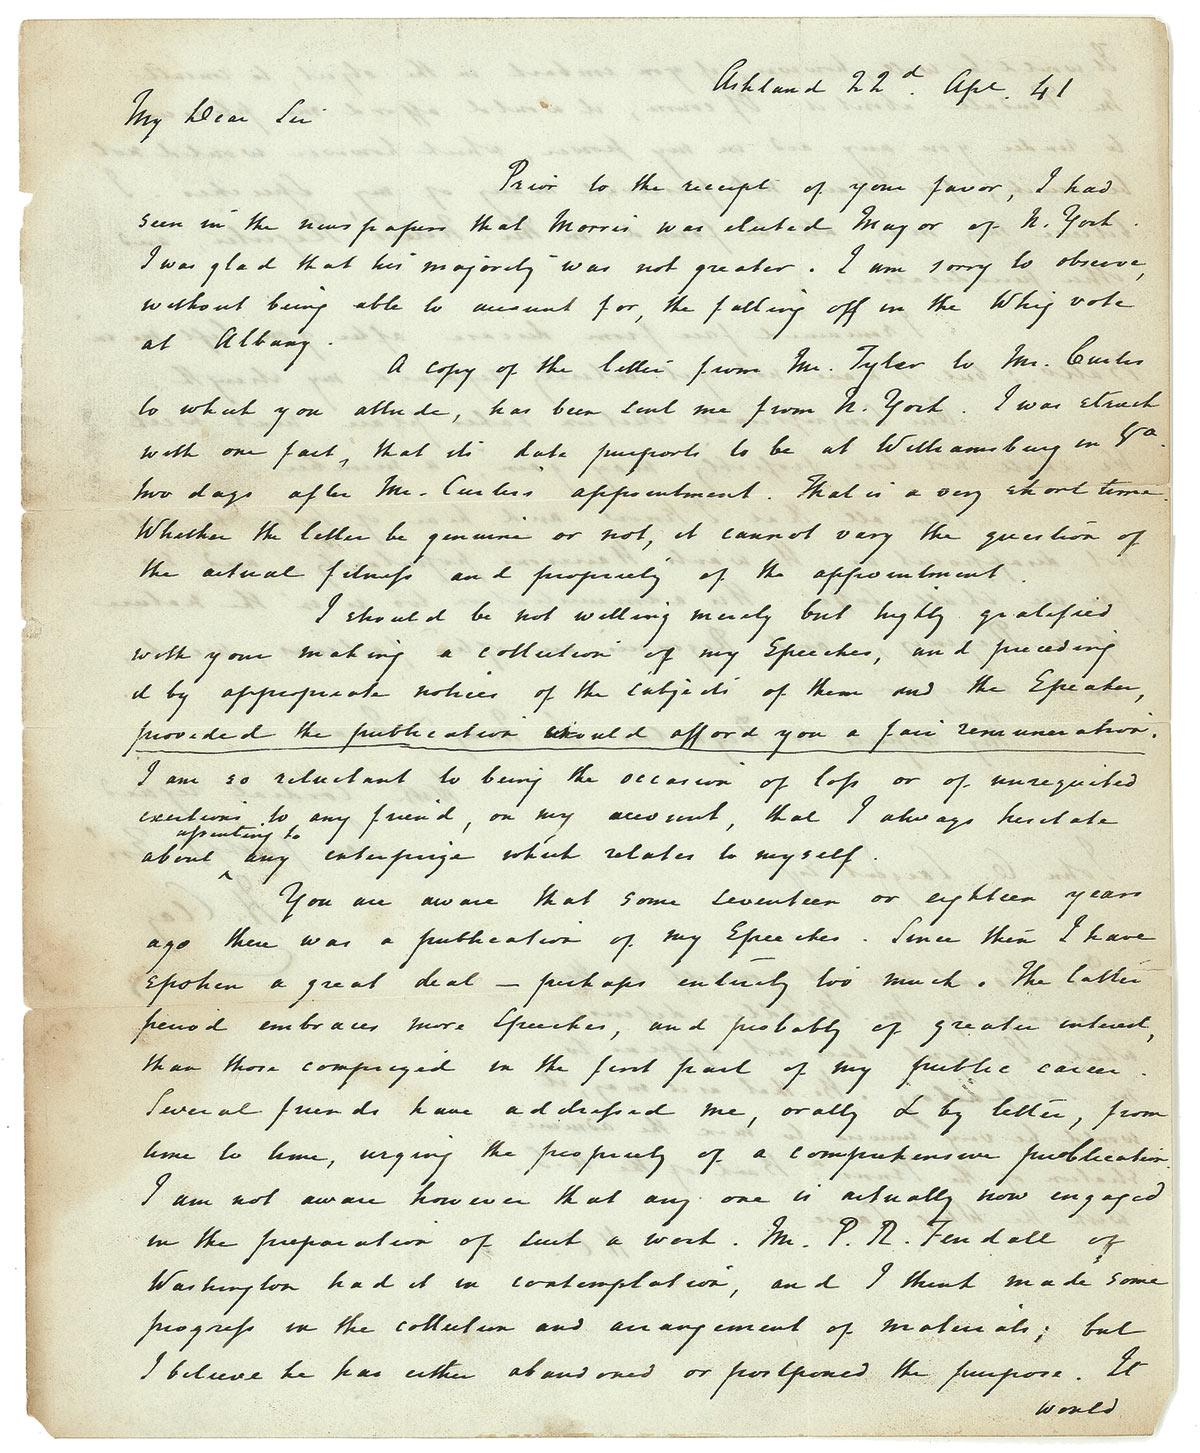 Ashland 22d. Apl. 41
My Dear Sir
Prior to the receipt of your favor, I had
seen in the newspapers that Morris was elected Mayor of N. York.
I was glad that his majority was not greater. I am sorry to observe,
without being able to account for, the falling off in the Whig vote
at Albany.
A copy of the letter from Mr. Tyler to Mr. Curtis
to which you allude, has been sent me from N. York. I was struck
with one fact, that its date purports to be at Williamsburg in Va.
two days after Mr. Curtis's appointment. That is a very short time.
Whether the letter be genuine or not, it cannot vary the question of
the actual fitness and propriety of the appointment.
I should be not willing merely but highly gratified
with your making a collection of my Speeches, and preceding
d by appropriate notices of the subjects of them and the Speaker,
provided the publication would afford you a fair remuneration.
I am so reluctant to being the occasion of loss or of unrequited
exertions to any friend, on my account, that I always hesitate
assenting to
about ^ any enterprize which relates to myself.
You are aware that some seventeen or eighteen years
ago there was a publication of my Speeches. Since then I have
spoken a great deal — perhaps entirely too much. The latter
period embraces more Speeches, and probably of greater interest,
than those comprized in the first part of my public career.
Several friends have addressed me, orally & by letter, from
time to time, urging the propriety of a comprehensive publication.
I am not aware however that any one is actually now engaged
in the preparation of such a work. Mr. P. R. Fendall of
Washington had it in contemplation, and I think made some
progress in the collection and arrangement of materials; but
I believe he has either abandoned or postponed the purpose. It
would